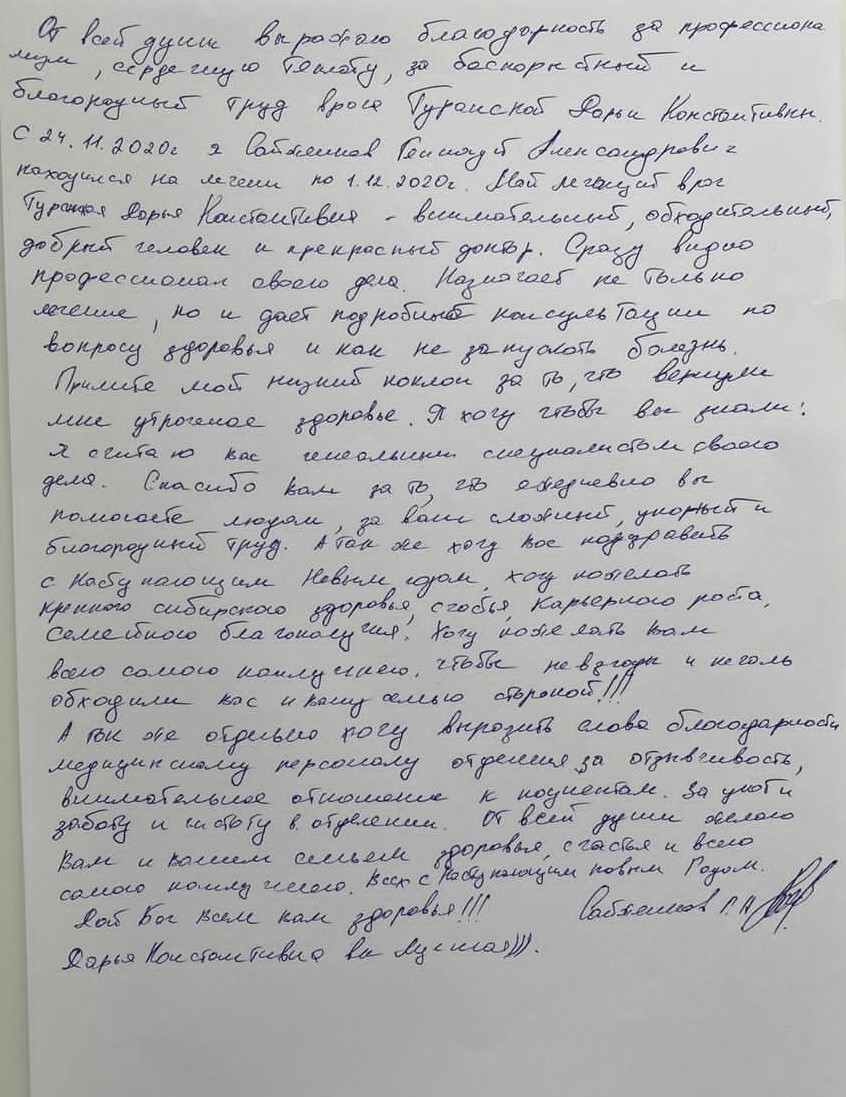 От всей души выражаю благодарность за профессиона
лизм, сердечную теплоту, за бескорыстный и
благородный труд врача Туранской Дарьи Константивны.
С 24.11.2020г я Сайженков Геннадий Александрович
находился на лечении по 1.12.2020г. Мой лечащий врач
Туранская Дарья Константивна - внимательный, обходительный,
добрый человек и прекрасный доктор. Сразу видно
профессионал своего дела. Назначает не только
лечение, но и дает подробные консультации по
вопросу здоровья и как не запускать болезнь.
Примите мой низкий поклон за то, что вернули
мне утраченное здоровье. Я хочу чтобы вы знали:
я считаю вас гениальным специалистом своего
дела. Спасибо вам за то, что ежедневно вы
помогаете людям, за ваш сложный, упорный и
благородный труд. А так же хочу вас поздравить
с наступающим Новым годом, хочу пожелать
крепкого сибирского здоровья, счастья, карьерного роста,
семейного благополучия. Хочу пожелать вам
всего самого наилучшего. Чтобы невзгоды и печаль
обходили вас и вашу семью стороной!!!
А так же отдельно хочу выразить слова благодарности
медицинскому персоналу отделения за отзывчивость,
внимательное отношение к пациентам. За уют и
заботу и чистоту в отделении. От всей души желаю
вам и вашем семьям здоровья, счастья и всего
самого наилучшего. Всех с наступающим новым Годом.
Дай Бог всем вам здоровья!!! Сайженков Г. А
Дарья Константивна вы Лучшая))).